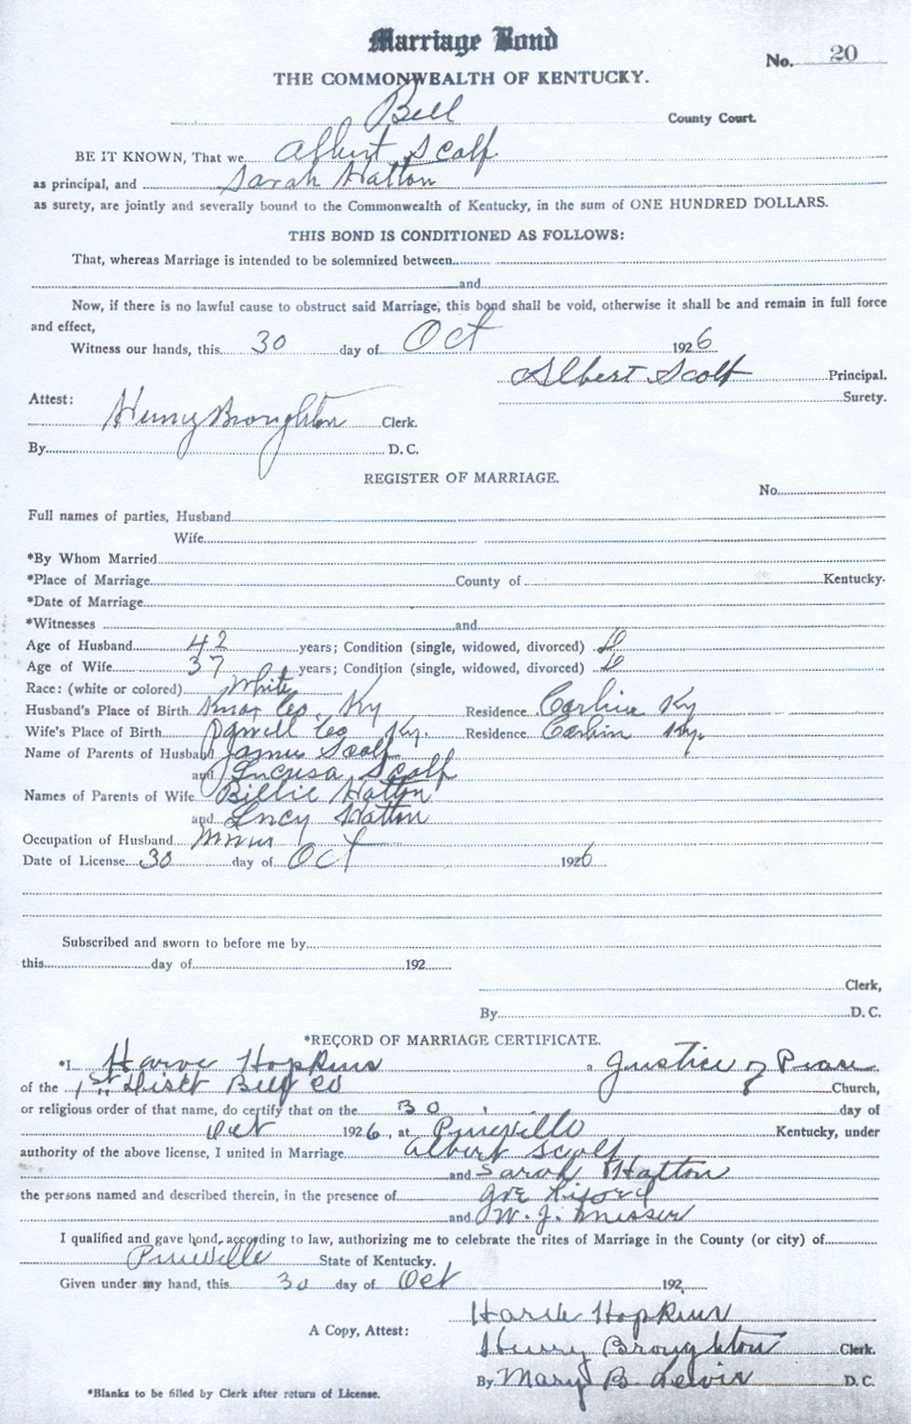 Marriage Bond
No. 20
THE COMMONWEALTH OF KENTUCKY.
Bell County Court.
BE IT KNOWN, That we Albert Scalf
as principal, and Sarah Hatton
as surety, are jointly and severally bound to the Commonwealth of Kentucky, in the sum of ONE HUNDRED DOLLARS.
THIS BOND IS CONDITIONED AS FOLLOWS:
That, whereas Marriage is intended to be solemnized between
and
Now, if there is no lawful cause to obstruct said Marriage, this bond shall be void, otherwise it shall be and remain in full force
and effect,
Witness our hands, this 30 day of Oct 1926
Albert Scalf Principal.
Attest: Surety.
Henry Broughton Clerk.
By D. C.
REGISTER OF MARRIAGE.
No.
Full names of parties, Husband
Wife
*By Whom Married
*Place of Marriage County of Kentucky.
*Date of Marriage
*Witnesses and
Age of Husband 42 years; Condition (single, widowed, divorced) D
Age of Wife 37 years; Condition (single, widowed, divorced) D
Race: (white or colored) White
Husband's Place of Birth Knox Co. Ky Residence Ky
Wife's Place of Birth Powell Co Ky. Residence Corbin Ky.
Name of Parents of Husband James Scalf
and Scalf
Names of Parents of Wife Billie Hatton
and Lucy Hatton
Occupation of Husband
Date of License 30 day of Oct 1926
Subscribed and sworn to before me by
this day of 192
Clerk,
By D. C.
*RECORD OF MARRIAGE CERTIFICATE.
*I Harve Hopkins a Justice of Peace
of the 1st Dist Bell Co Church,
or religious order of that name, do certify that on the 30 day of
Oct 1926, at Pineville Kentucky, under
authority of the above license, I united in Marriage Albert Scalf
and Sarah Hatton
the persons named and described therein, in the presence of
and W. J. Messer
I qualified and gave bond, according to law, authorizing me to celebrate the rites of Marriage in the County (or city) of
Pineville State of Kentucky.
Given under my hand, this 30 day of Oct 192
Harve Hopkins
A Copy, Attest: Henry Broughton Clerk.
By Mary B. Lewis D. C.
*Blanks to be filled by Clerk after return of License.